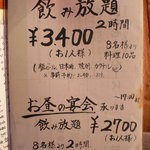 飲み放題
2時間
¥3400
(お1人様)
8名様より
料理10品
(瓶ビール、日本酒、焼酎、カクテル
※事前予約
お昼の宴会 承ります
〜17:00
飲み放題 ¥2700
8名様より2時間
(お1人様)